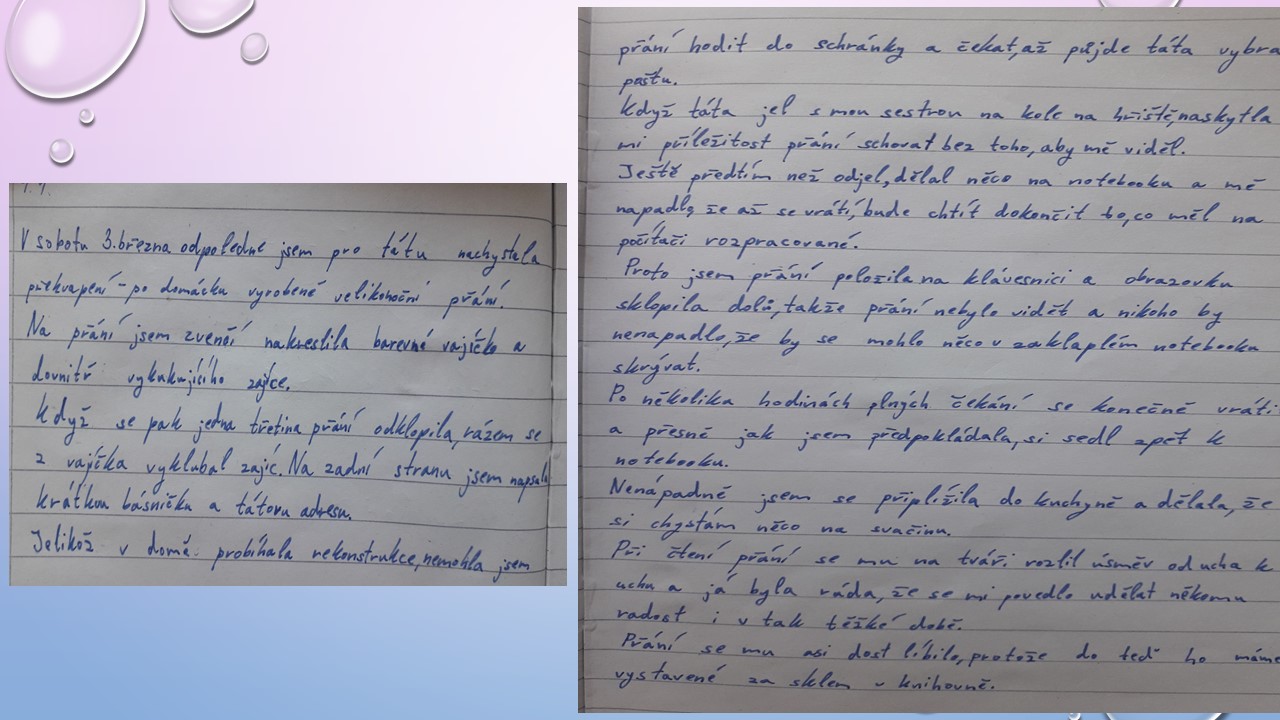 V sobotu 3. března odpoledne jsem pro tátu nachystala
překvapení - po domácku vyrobené velikonoční přání.
Na přání jsem zvenčí nakreslila barevné vajíčko a
dovnitř vykukujícího zajíce.
Když se pak jedna třetina přání odklopila, rázem se
z vajíčka vyklubal zajíc. Na zadní stranu jsem napsala
krátkou básničku a tátovu adresu.
Jelikož v domě probíhala rekonstrukce, nemohla jsem
přání hodit do schránky a čekat, až půjde táta vybra
poštu.
Když táta jel s mou sestrou na kole na hřiště, naskytla
mi příležitost přání schovat bez toho, aby mě viděl.
Ještě předtím než odjel, dělal něco na notebooku a mě
napadlo, že až se vrátí, bude chtít dokončit to, co měl na
počítači rozpracované.
Proto jsem přání položila na klávesnici a obrazovku
sklopila dolů, takže přání nebylo vidět a nikoho by
nenapadlo, že by se mohlo něco v zaklaplém notebooku
skrývat.
Po několika hodinách plných čekání se konečně vráti
a přesně jak jsem předpokládala, si sedl zpět k
notebooku.
Nenápadně jsem se připlížila do kuchyně a dělala, že
si chystám něco na svačinu.
Při čtení přání se mu na tváři rozlil úsměv od ucha k
uchu a já byla ráda, že se mi povedlo udělat někomu
radost i v tak těžké době.
Přání se mu asi dost líbilo, protože do teď ho máme
vystavené za sklem v knihovně.